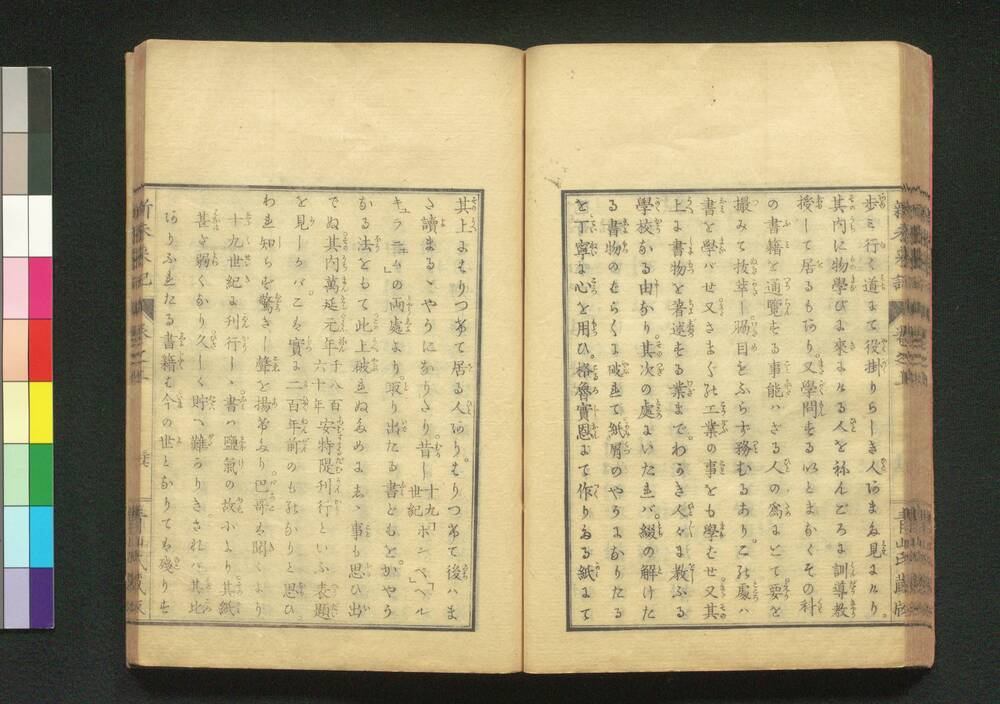 歩み行く道にて役掛りらしき人あまた見えたり
其内に物學びに來よける人を祢んごろに訓導教
授して居るもあり。又學問するいとまなくその科
の書籍を通覽する事能ハざる人の為にとて要を
撮みて抜萃し脇目をふらず務むるあり。この處ハ
書を學バせ又さまざまの工業の事をも學ばせ又其
上に書物を著述する業までわかき人々に教ふる
學校なる由なり其次の處にいたれバ綴の解けた
る書物のむらくに破れて紙屑のやうになりたる
を丁寧に心を用ひ。格魯實恩にて作りたる紙にて
其上にはりつけて居る人あり。はりつけて後ハま
た讀まるゝやうになりたり。昔し十九世紀「ボンベ」「ヘル
キュラニュム」の両處より取り出たる書ともをかやう
なる法をもて此上破れぬためにせし事も思ひ出
でぬ其内萬延元年千八百六十年安特隄刊行といふ表題
を見しかバこも實に二百年前のものなりと思ひ
われ知らず驚きし聲を揚げたり。巴哥も聞くより
十九世紀に刊行しゝ書ハ鹽氣の故により其紙
甚ゞ弱くなり久しく貯へ難かりきされバ其比
ありふれたる書籍も今の世となりても殘りを
青山氏藏版